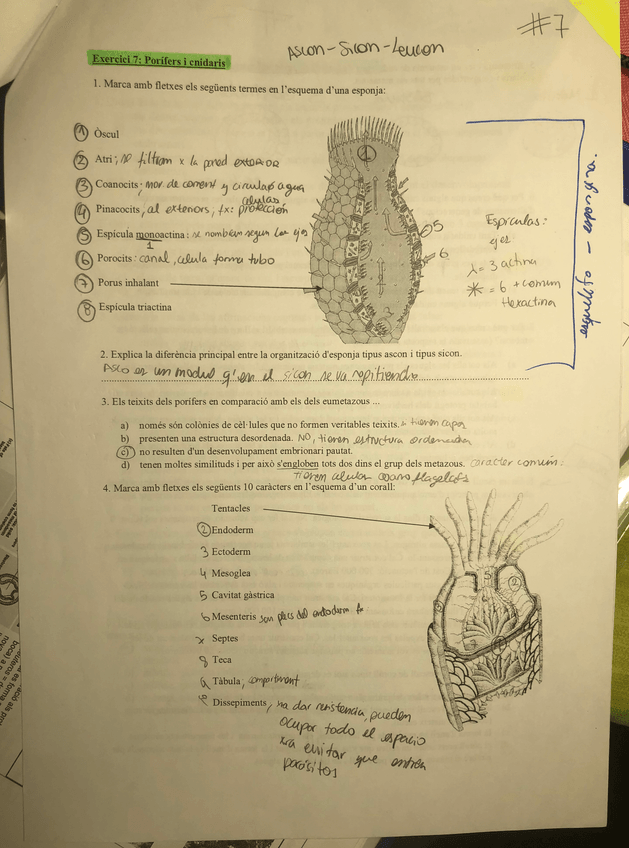 #7
Ascon - Sicon - Leucon
Exercici 7: Porífers i cnidaris
1. Marca amb fletxes els següents termes en l'esquema d'una esponja:
1 Òscul
2 Atri; se filtram x la pared exterior
3 Coanocits; mov. de corrent y circulació agua
células
4 Pinacocits, al exteriors, fx: protección
5 Espícula monoactina: se nombran segun los ejes
1
6 Porocits: canal, celula forma tubo
7 Porus inhalant
8 Espícula triactina
1
5
6
3
Espiculas:
ejes
= 3 actina
* = 6 + comun
Hexactina
esqueleto
2. Explica la diferència principal entre la organització d'esponja tipus ascon i tipus sicon.
Asco es un modul q' en el sicon se va repitiendo
3. Els teixits dels porífers en comparació amb els dels eumetazous ...
a) només són colònies de cèl·lules que no formen veritables teixits. tienen capas
b) presenten una estructura desordenada. NO, tienen estructura ordenada
c) no resulten d'un desenvolupament embrionari pautat.
d) tenen moltes similituds i per això s'engloben tots dos dins el grup dels metazous. caracter común:
tienen celulas coanoflageladas
4. Marca amb fletxes els següents 10 caràcters en l'esquema d'un corall:
Tentacles
2 Endoderm
3 Ectoderm
4 Mesoglea
5 Cavitat gàstrica
6 Mesenteris son plecs del endoderm
7 Septes
8 Teca
9 Tàbula, compartiment
10 Dissepiments, pa dar resistencia, pueden
ocupar todo el espacio
xra evitar que entren
parásitos
5
2
3